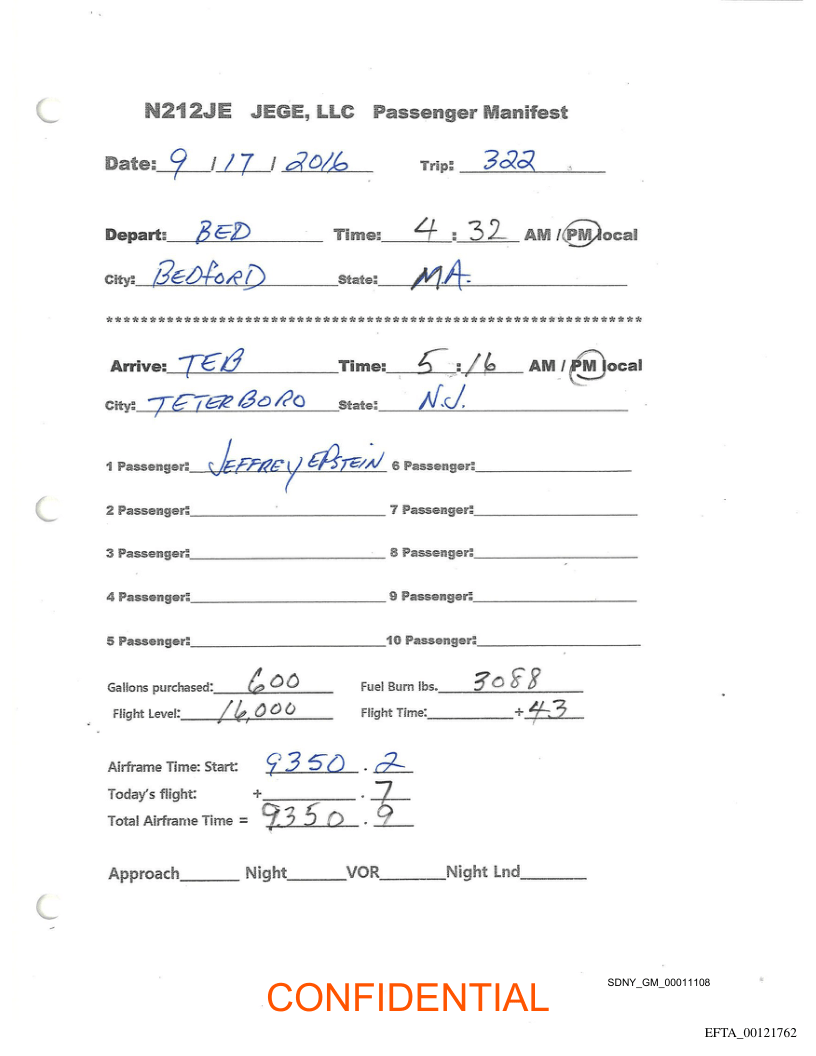 N212JE JEGE, LLC Passenger Manifest
Date: 9 / 17 / 2016 Trip: 322
Depart: BED Time: 4 : 32 AM / PM local
City: BEDFORD State: MA.
**************************************************************
Arrive: TEB Time: 5 : 16 AM / PM local
City: TETERBORO State: N.J.
1 Passenger: JEFFREY EPSTEIN 6 Passenger:
2 Passenger: 7 Passenger:
3 Passenger: 8 Passenger:
4 Passenger: 9 Passenger:
5 Passenger: 10 Passenger:
Gallons purchased: 600 Fuel Burn lbs. 3088
Flight Level: 16,000 Flight Time: + 43
Airframe Time: Start: 9350 . 2
Today's flight: + . 7
Total Airframe Time = 9350 . 9
Approach Night VOR Night Lnd
SDNY_GM_00011108
CONFIDENTIAL
EFTA_00121762